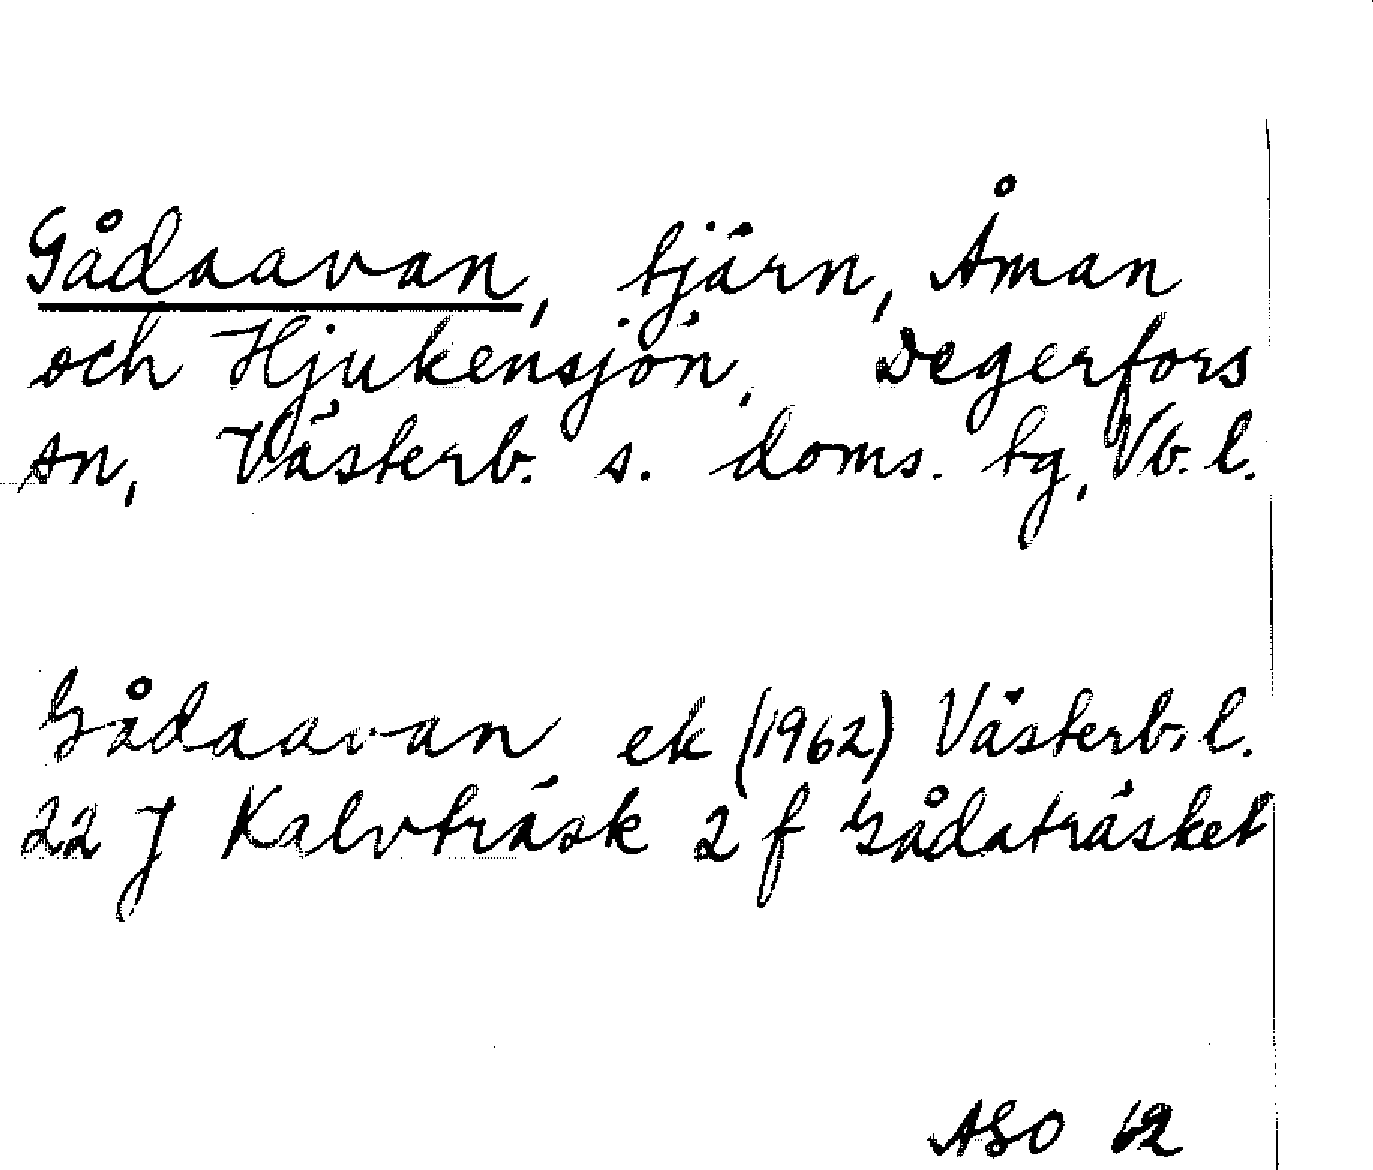 Gådaavan, tjärn, Åman
och Hjukensjön, Degerfors
sn, Västerb. s. doms. tg, Vb. l.
Gådaavan ek (1962) Västerb. l.
22 J Kalvträsk 2 f Gådaträsket
ASO 62